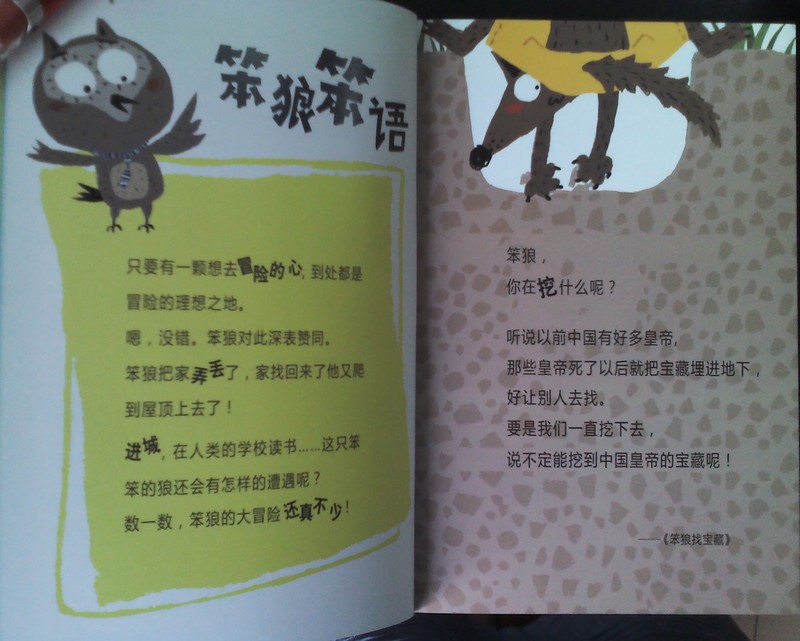 笨狼笨语
只要有一颗想去冒险的心, 到处都是
冒险的理想之地。
嗯，没错。笨狼对此深表赞同。
笨狼把家弄丢了，家找回来了他又爬
到屋顶上去了！
进城，在人类的学校读书……这只笨
笨的狼还会有怎样的遭遇呢？
数一数，笨狼的大冒险还真不少！
笨狼，
你在挖什么呢？
听说以前中国有好多皇帝,
那些皇帝死了以后就把宝藏埋进地下，
好让别人去找。
要是我们一直挖下去，
说不定能挖到中国皇帝的宝藏呢！
——《笨狼找宝藏》